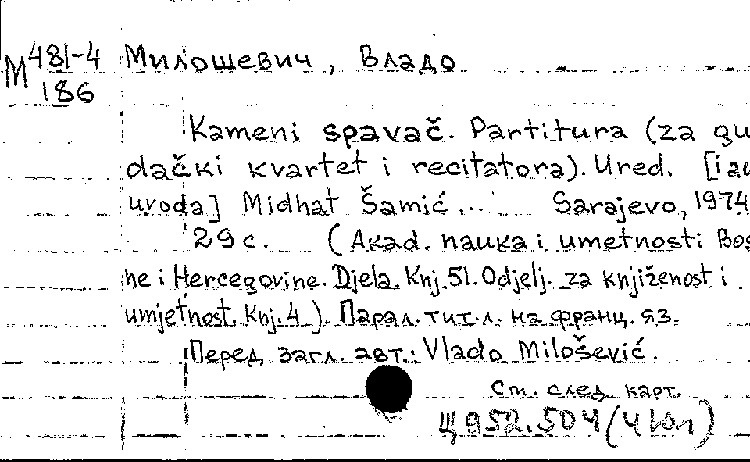 М 481-4 Милошевич, Владо
186
Kameni spavač. Partitura (za gu
dački kvartet i recitatora). Ured. [i au
uvoda] Midhat Šamić... Sarajevo, 1974
29 с. (Akad. nauka i umetnosti Bos
ne i Hercegovine. Djela. Knj. 51. Odjelj. za književnost i
umjetnost. Knj. 4.). Парал. тит. л. на франц. яз.
Перед загл. авт.: Vlado Milošević.
См. след. карт.
Ц 952.504 (4 юл)